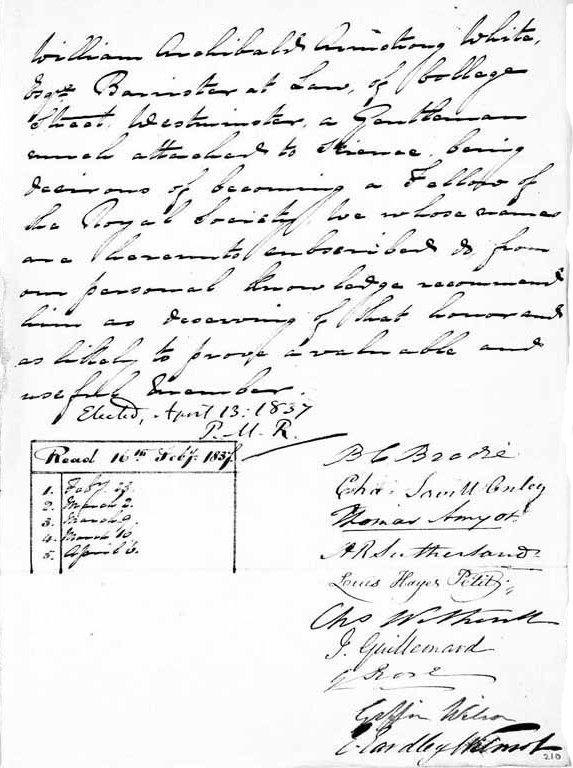 William Archibald Armstrong White,
Esqre Barrister at Law, of College
Street, Westminster, a Gentleman
much attached to Science, being
desirous of becoming a Fellow of
the Royal Society, We whose names
are hereunto subscribed do, from
our personal knowledge recommend
him as deserving of that honor and
as likely to prove a valuable and
useful Member.
Elected, April 13: 1837
P. M. R.
Read 16th Feby. 1837.
1. Feby. 23.
2. March 2.
3. March 9.
4. March 16.
5. April 6.
B C Brodie
Chas
Thomas Amyot.
A R Sutherland
Louis Hayes Petit
Chs
J. Guillemard
G Rose
Giffin Wilson
E. Eardley Wilmot
210